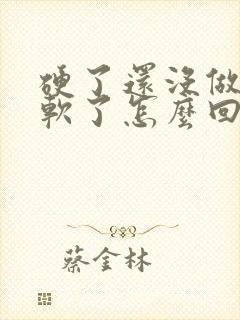 硬了還沒做
軟了怎麼回
蔡金林